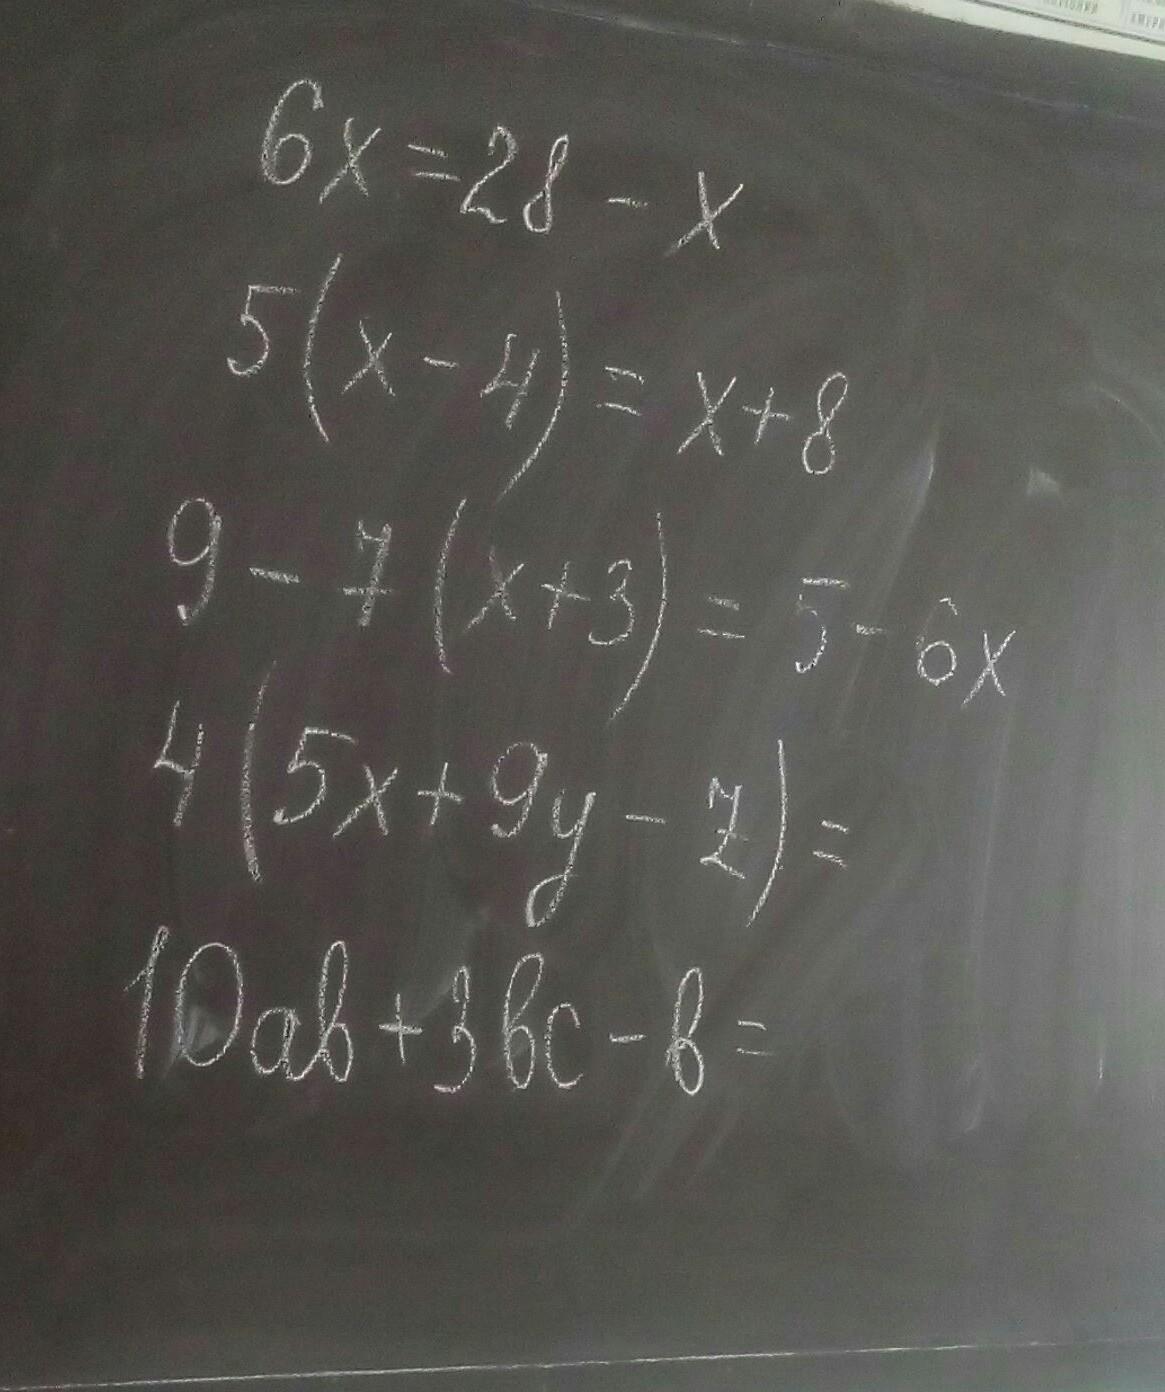 6x = 28 - x
5(x - 4) = x + 8
9 - 7(x + 3) = 5 - 6x
4(5x + 9y - 7) =
10ab + 3bc - b =